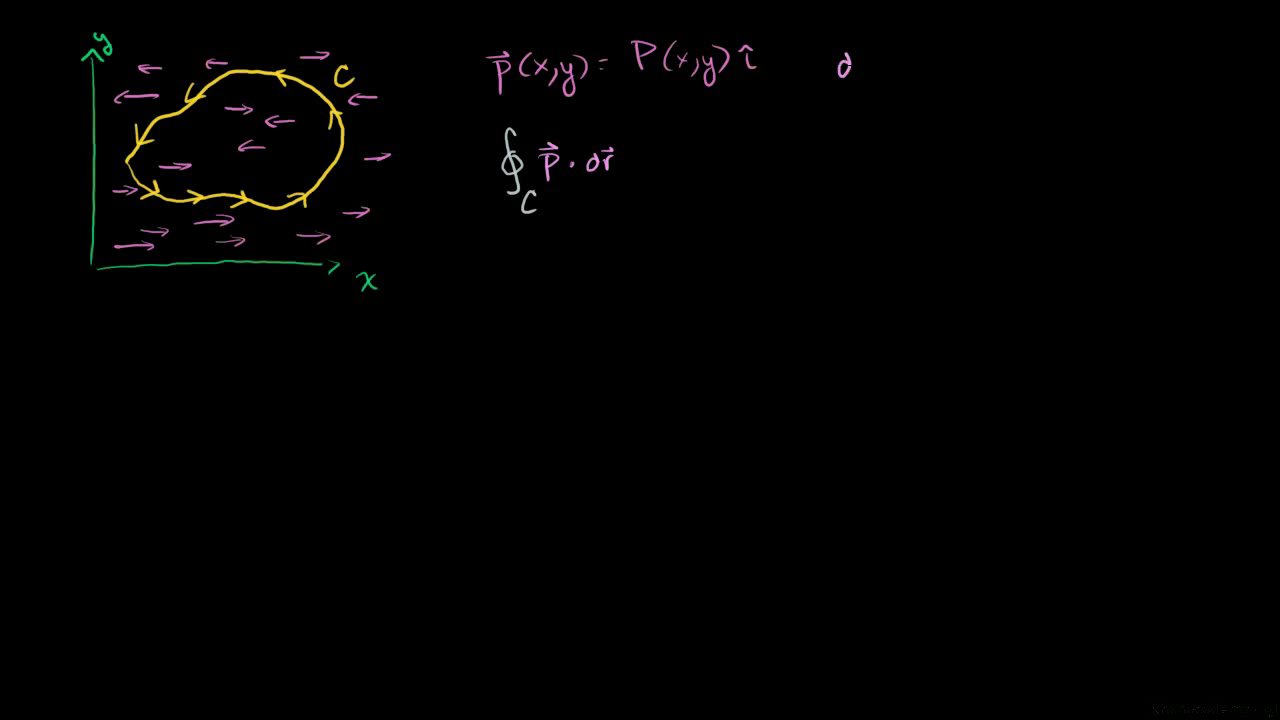 y
C
x
p⃗(x,y) = P(x,y) î d
∮_C p⃗ · dr⃗